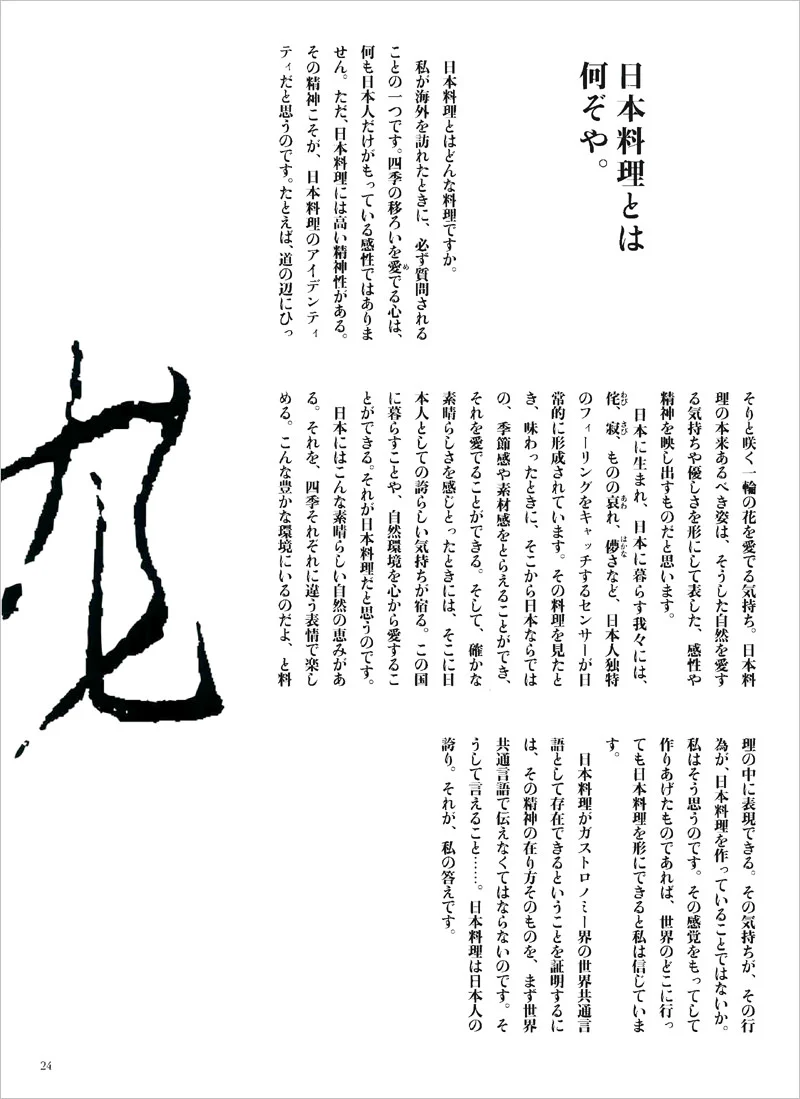 日本料理とは
何ぞや。
日本料理とはどんな料理ですか。
私が海外を訪れたときに、必ず質問される
ことの一つです。四季の移ろいを愛でる心は、
何も日本人だけがもっている感性ではありま
せん。ただ、日本料理には高い精神性がある。
その精神こそが、日本料理のアイデンティ
ティだと思うのです。たとえば、道の辺にひっ
そりと咲く一輪の花を愛でる気持ち。日本料
理の本来あるべき姿は、そうした自然を愛す
る気持ちや優しさを形にして表した、感性や
精神を映し出すものだと思います。
日本に生まれ、日本に暮らす我々には、
侘、寂、ものの哀れ、儚さなど、日本人独特
のフィーリングをキャッチするセンサーが日
常的に形成されています。その料理を見たと
き、味わったときに、そこから日本ならでは
の、季節感や素材感をとらえることができ、
それを愛でることができる。そして、確かな
素晴らしさを感じとったときには、そこに日
本人としての誇らしい気持ちが宿る。この国
に暮らすことや、自然環境を心から愛するこ
とができる。それが日本料理だと思うのです。
日本にはこんな素晴らしい自然の恵みがあ
る。それを、四季それぞれに違う表情で楽し
める。こんな豊かな環境にいるのだよ、と料
理の中に表現できる。その気持ちが、その行
為が、日本料理を作っていることではないか。
私はそう思うのです。その感覚をもってして
作りあげたものであれば、世界のどこに行っ
ても日本料理を形にできると私は信じていま
す。
日本料理がガストロノミー界の世界共通言
語として存在できるということを証明するに
は、その精神の在り方そのものを、まず世界
共通言語で伝えなくてはならないのです。そ
うして言えること……。日本料理は日本人の
誇り。それが、私の答えです。
24